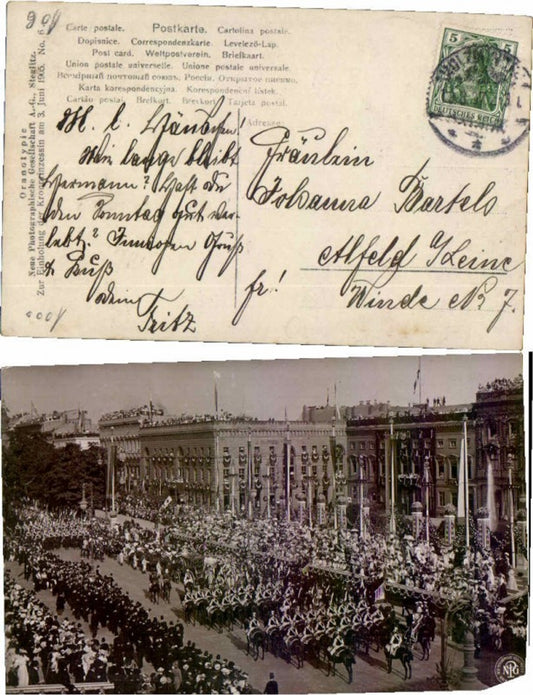 Carte postale. Postkarte. Cartolina postale.
Dopisnice. Correspondenzkarte. Levelező-Lap.
Post card. Weltpostverein. Briefkaart.
Union postale universelle. Unione postale universale.
Всемірный почтовый союзъ. Россія. Открытое письмо.
Karta korespondencyjna. Korespondenční lístek.
Cartão postal. Brefkort. Brevkort. Tarjeta postal.
Adresse:
Oranotypie
Neue Photographische Gesellschaft A.-G., Steglitz.
Zur Einholung der Kronprinzessin am 3. Juni 1905. No. 6
5 5
DEUTSCHES REICH
M. l.
Wie lange bleibt
Hermann? Hast du
den Sonntag gut ver-
lebt? Innigen Gruß
& Kuß
dein
Fritz
Fräulein
Johanna Bartels
Alfeld a/Leine
fr! Winde No 7.
NPG